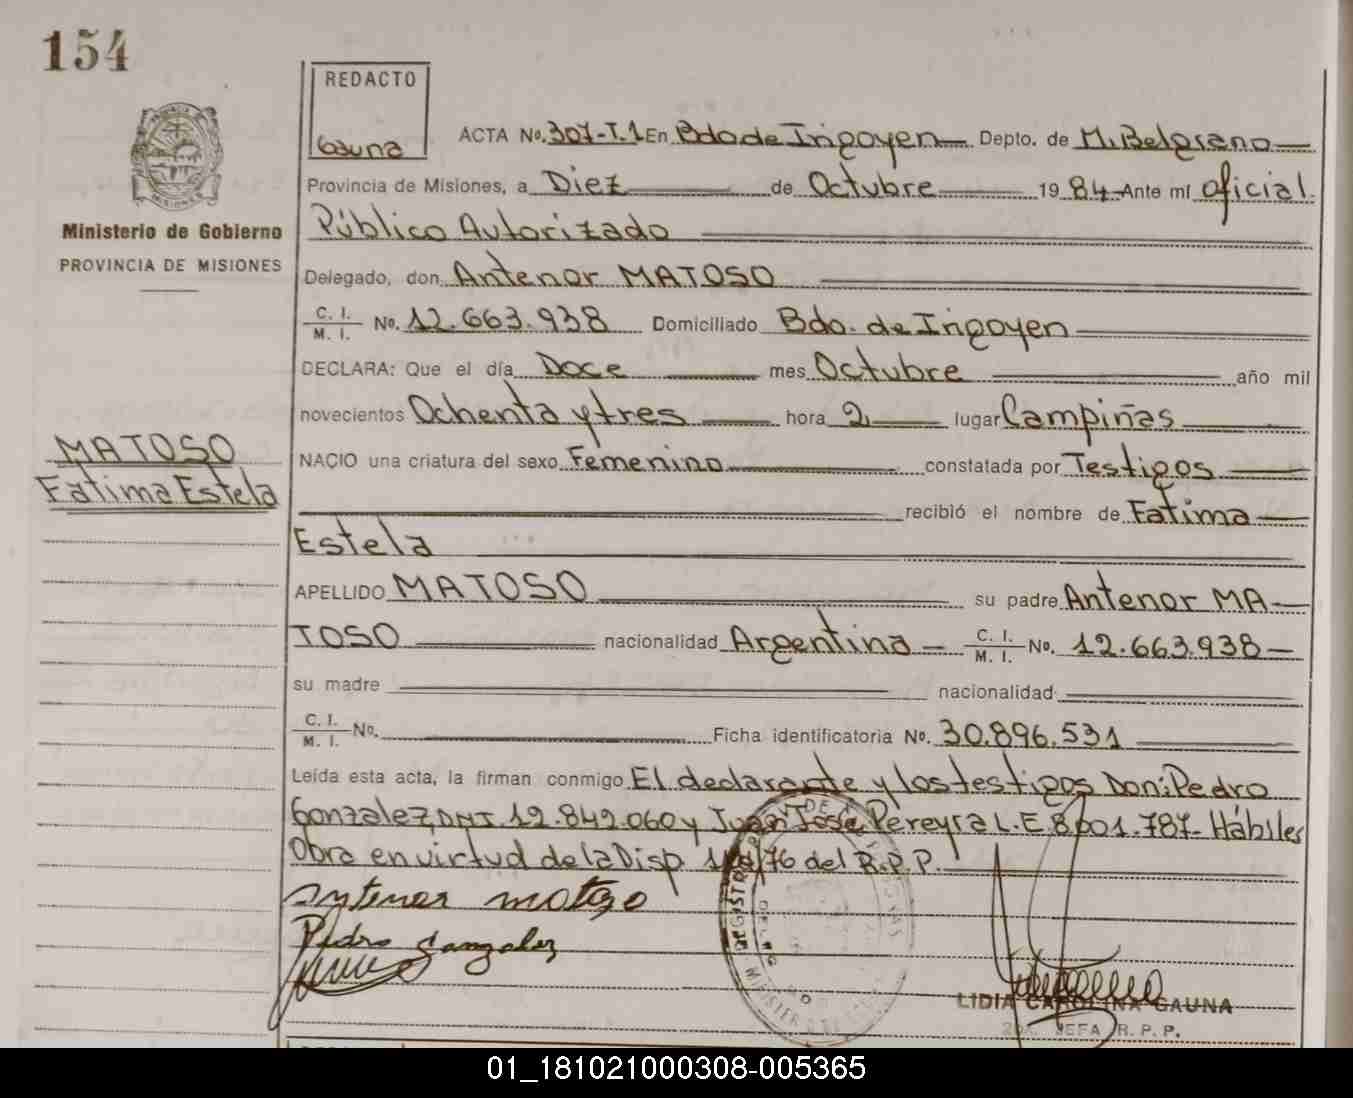 154
REDACTO
Gauna
ACTA No. 307-T.1 En Bdo de Irigoyen Depto. de M. Belgrano
Provincia de Misiones, a Diez de Octubre 19 84 Ante mí oficial
Público Autorizado
Ministerio de Gobierno
PROVINCIA DE MISIONES
Delegado, don Antenor MATOSO
C. I.
M. I. No. 12.663.938 Domiciliado Bdo. de Irigoyen
DECLARA: Que el día Doce mes Octubre año mil
novecientos Ochenta y tres hora 2 lugar Campiñas
MATOSO
Fatima Estela
NACIO una criatura del sexo Femenino constatada por Testigos
recibió el nombre de Fatima
Estela
APELLIDO MATOSO su padre Antenor MA-
TOSO nacionalidad Argentina C. I.
M. I. No. 12.663.938
su madre nacionalidad
C. I.
M. I. No. Ficha identificatoria No. 30.896.531
Leída esta acta, la firman conmigo El declarante y los testigos Don: Pedro
Gonzalez, DNI. 12.842.060 y Juan José Pereyra L.E 8.001.787- Hábiles
Obra en virtud de la Disp. /76 del R.P.P.
Antenor matoso
Pedro Gonzalez
LIDIA CAROLINA GAUNA
2da. JEFA R. P. P.
01_181021000308-005365